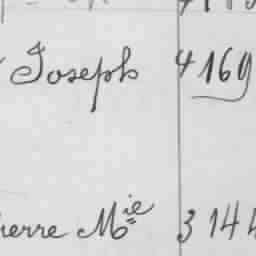 Joseph 4 169
Pierre Mie 3 144